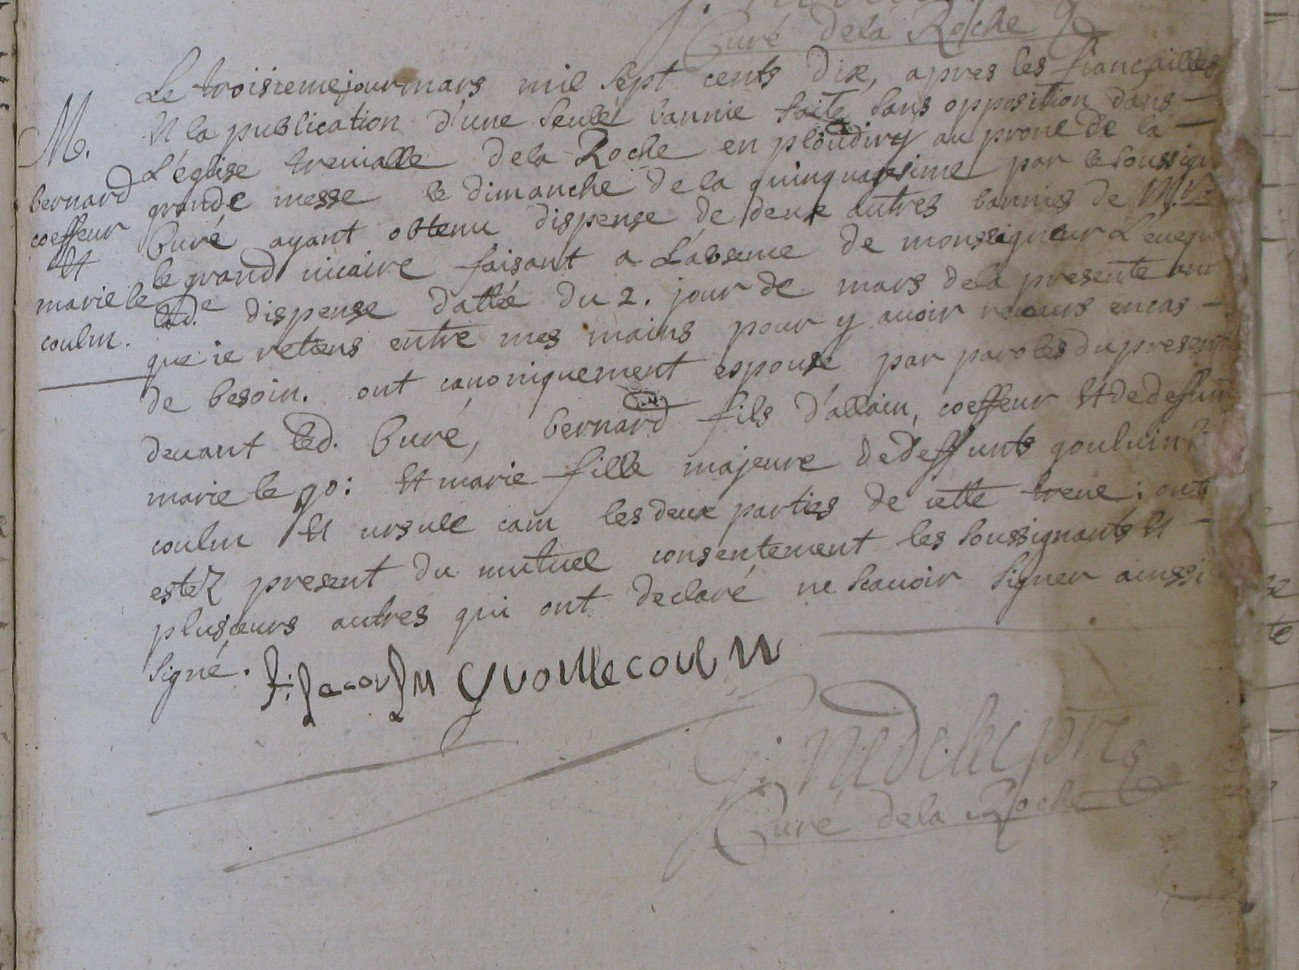 Curé dela Roche
Le troisiemejour mars mil sept cents dix, apres les fiançailles
Et la publication d'une seule bannie faite sans opposition dans
L'eglise trevialle dela Roche en ploudiry au prone de la
grande messe le dimanche de la quinquagesime par le soussigné
Curé ayant obtenu dispense de deux autres bannies de Mr
le grand vicaire faisant a L'absence de monseigneur L'eveque
led. dispense dattée du 2. jour de mars dela presente
que ie retiens entre mes mains pour y avoir recours encas
de besoin. ont canoniquement espouse par paroles du present
devant led. Curé, bernard fils d'allain, coeffeur Et de deffunte
marie le go: Et marie fille majeure dedeffunts goulvin le
coulm Et ursule cam les deux parties de cette treve; ont
estéz present du mutuel consentement les soussignants Et
plusieurs autres qui ont declaré ne scavoir signer ainssi
signé.
M.
bernard
coeffeur
Et
marie le
coulm.
Yvon lle coulm
G: Nedelec pre
Curé dela Roche